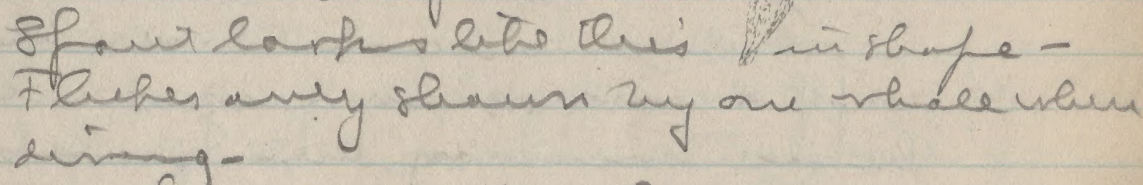 Spout looks like this in shape -
Flukes only shown by one whale when
diving -